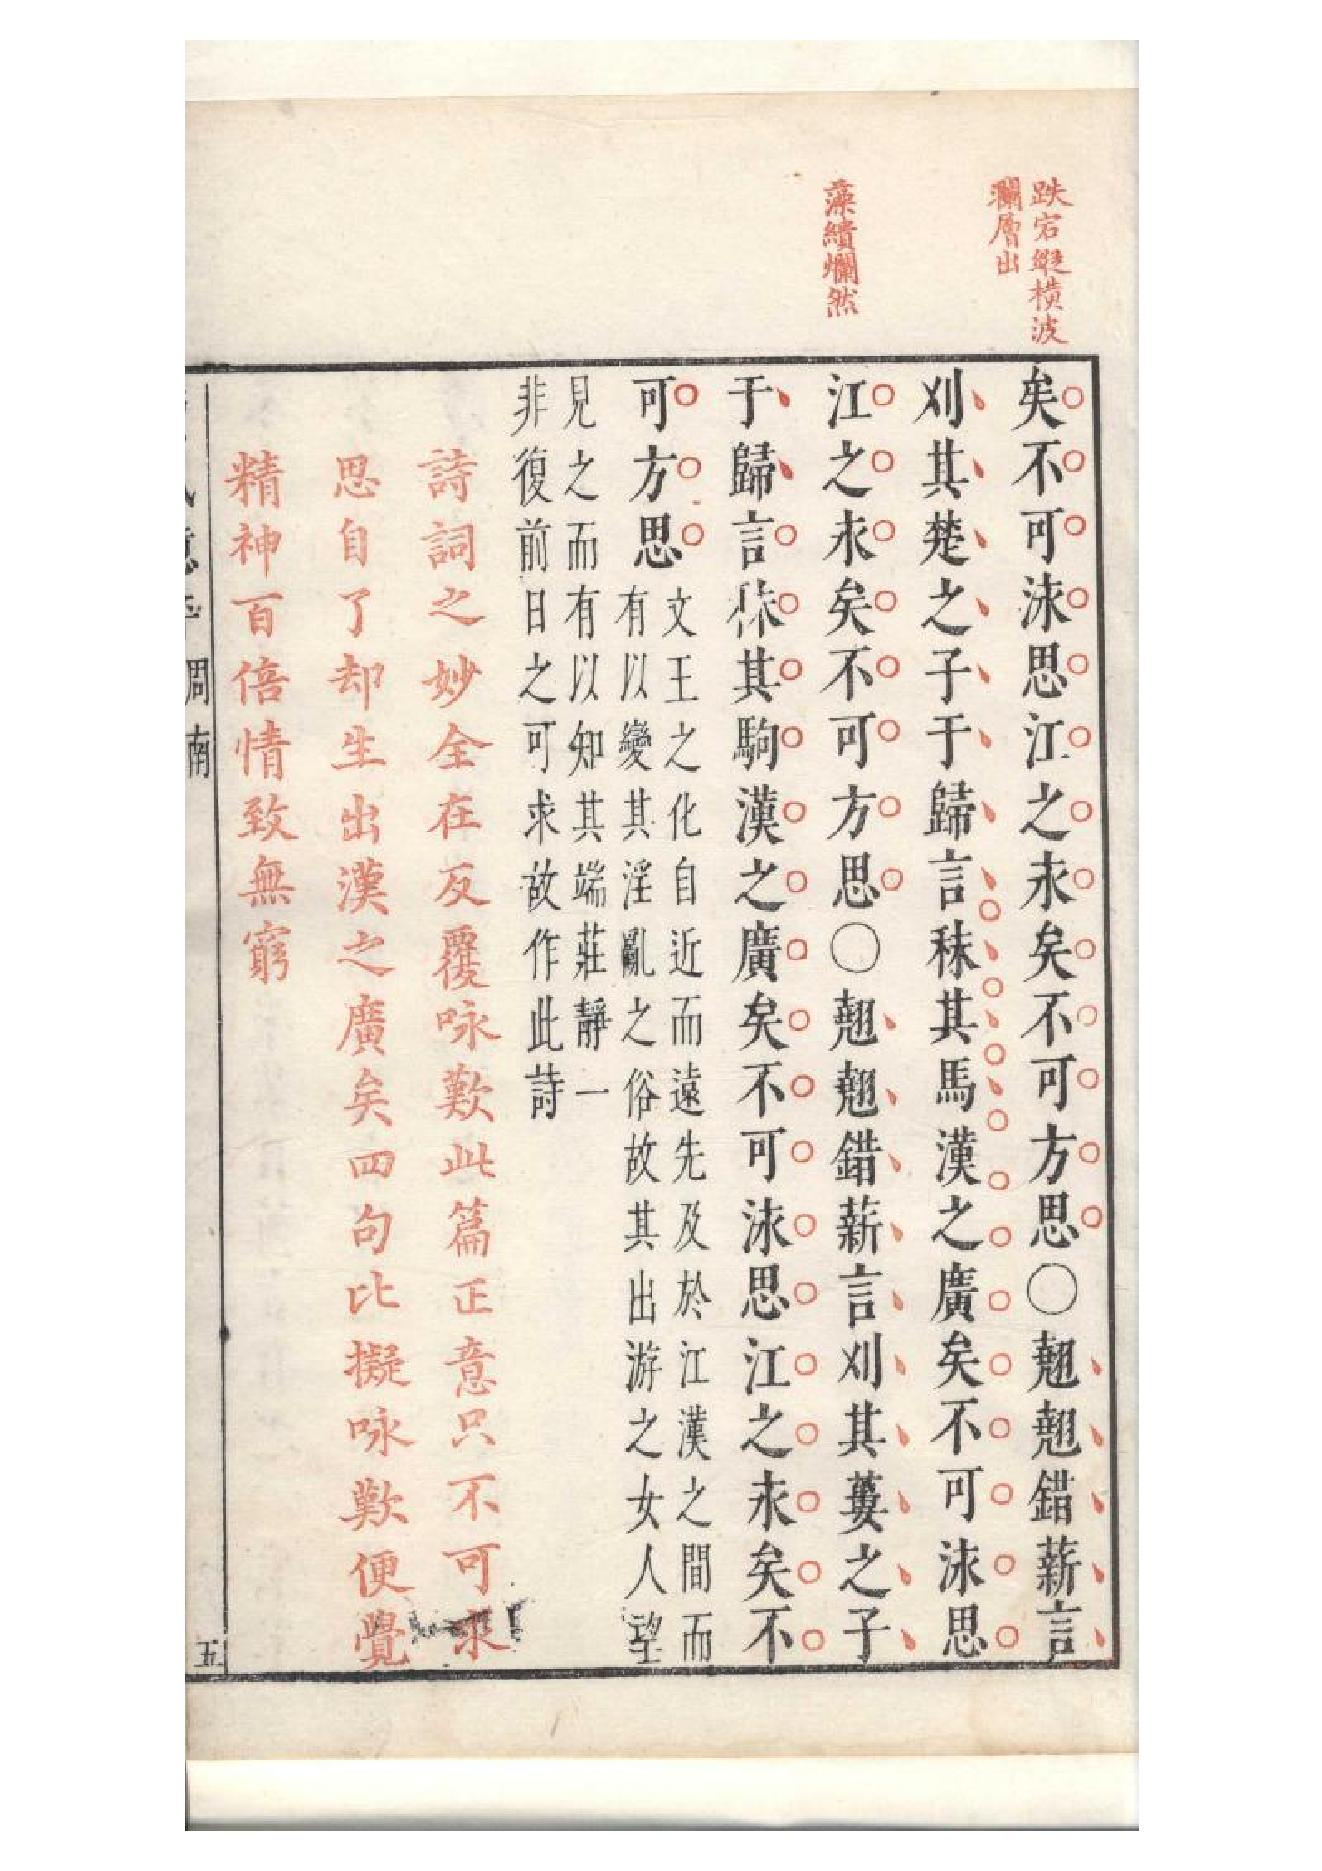 跌宕縱橫波
瀾層出
藻繢爛然
矣不可泳思江之永矣不可方思〇翹翹錯薪言
刈其楚之子于歸言秣其馬漢之廣矣不可泳思
江之永矣不可方思〇翹翹錯薪言刈其蔞之子
于歸言秣其駒漢之廣矣不可泳思江之永矣不
可方思
文王之化自近而遠先及於江漢之間而
有以變其淫亂之俗故其出游之女人望
見之而有以知其端莊靜一
非復前日之可求故作此詩
詩詞之妙全在反覆咏歎此篇正意只不可求
思自了却生出漢之廣矣四句比擬咏歎便覺
精神百倍情致無窮
周南
五